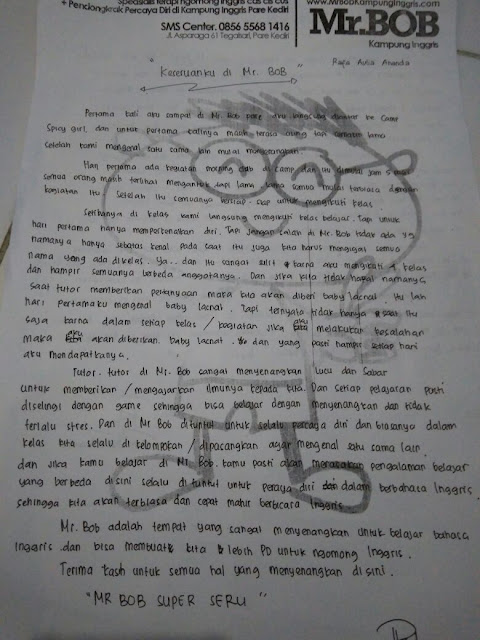 Spesialis terapi ngomong Inggris cas cis cus
+ Pendongkrak Percaya Diri di Kampung Inggris Pare Kediri
SMS Center. 0856 5568 1416
Jl. Asparaga 61 Tegalsari, Pare Kediri
www.MrBobKampungInggris.com
Mr.BOB
Kampung Inggris
Aulia Ananda
"Keseruanku di Mr. BOB"
Pertama kali aku sampai di Mr. Bob pare aku langsung diantar ke Camp
Spicy girl, dan untuk pertama kalinya masih terasa asing tapi lama
setelah kami mengenal satu sama lain mulai
Hari pertama ada kegiatan morning di camp dan itu dimulai jam 5
semua orang masih terlihat mengantuk tapi lama lama semua mulai terbiasa dengan
kegiatan itu. Setelah itu semuanya siap untuk mengikuti kelas.
Setibanya di kelas kami langsung mengikuti kelas belajar. Tapi untuk
hari pertama hanya memperkenalkan diri. Tapi jangan salah di Mr. Bob tidak ada yg
namanya hanya sebatas kenal pada saat itu juga kita harus mengingat semua
nama yang ada dikelas. Ya.. dan itu sangat sulit karna aku mengikuti 4 kelas
dan hampir semuanya berbeda anggotanya. Dan jika kita tidak hafal namanya,
saat tutor memberikan pertanyaan maka kita akan diberi baby lacnat. Itu lah
hari pertamaku mengenal baby lacnat. Tapi ternyata tidak hanya saat itu
saja karna dalam setiap kelas / kegiatan jika aku melakukan kesalahan
maka aku akan diberikan baby lacnat. dan yang pasti hampir setiap hari
aku mendapatkanya.
Tutor-tutor di Mr. Bob sangat menyenangkan lucu dan sabar
untuk memberikan / mengajarkan ilmunya kepada kita. Dan setiap pelajaran pasti
diselingi dengan game sehingga bisa belajar dengan menyenangkan dan tidak
terlalu stres. Dan di Mr Bob dituntut untuk selalu percaya diri dan biasanya dalam
kelas kita selalu di kelompokan / dipasangkan agar mengenal satu sama lain.
dan jika kamu belajar di Mr. Bob. kamu pasti akan merasakan pengalaman belajar
yang berbeda disini selalu di tuntut untuk percaya diri dalam berbahasa Inggris
sehingga kita akan terbiasa dan cepat mahir berbicara Inggris.
Mr. Bob adalah tempat yang sangat menyenangkan untuk belajar bahasa
Inggris dan bisa membuat kita lebih PD untuk ngomong Inggris.
Terima kasih untuk semua hal yang menyenangkan disini.
"MR BOB SUPER SERU"